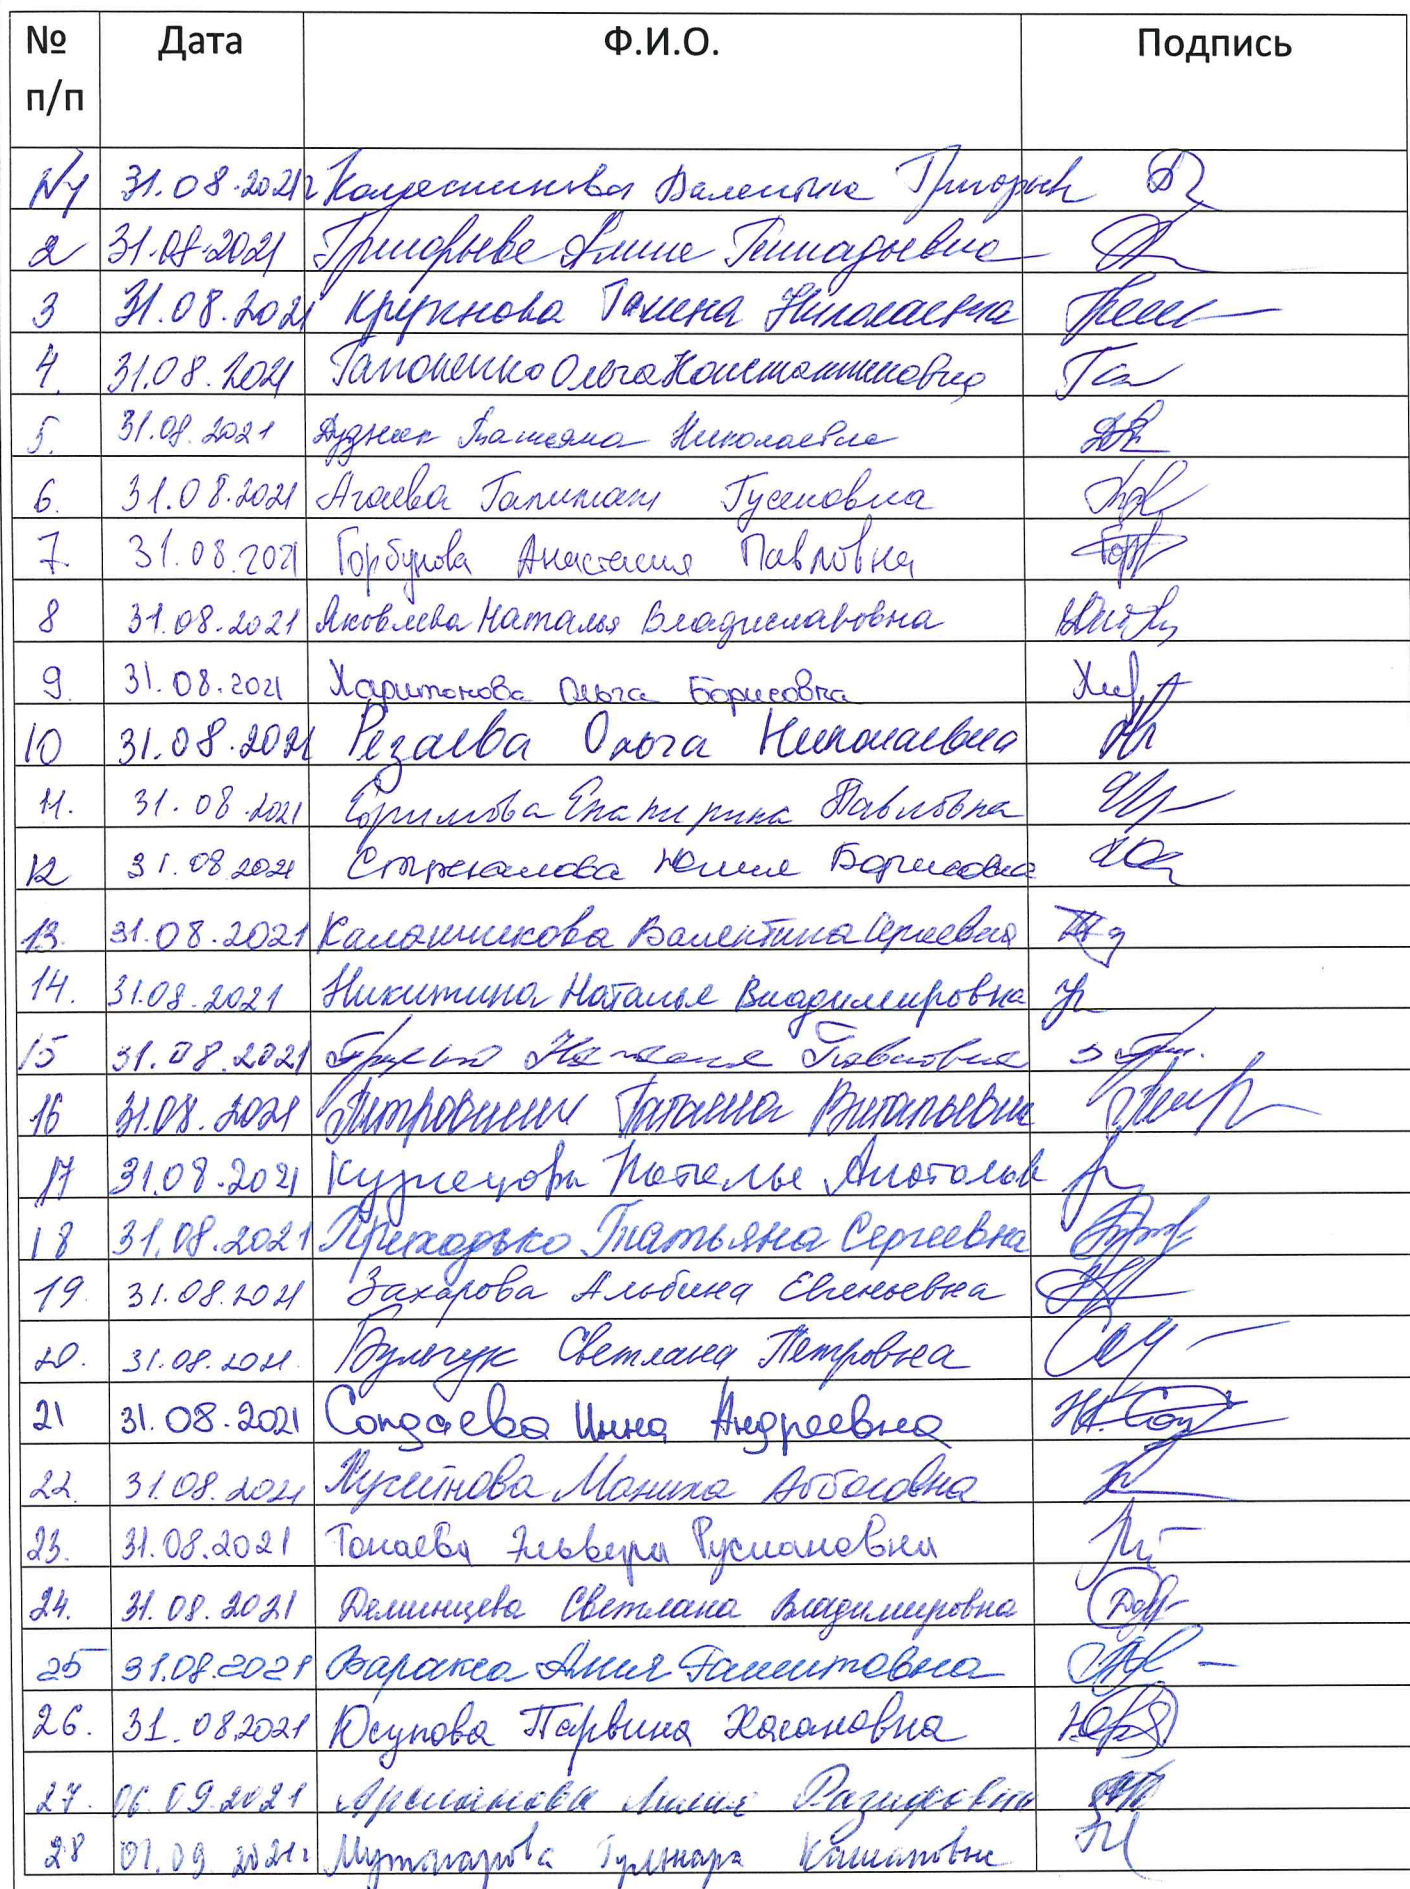 № п/п Дата Ф.И.О. Подпись
№1 31.08.2021г Колесникова Валентина Григорьев
2 31.08.2021 Григорьева Геннадьевна
3 31.08.2021 Кружнова Галина Николаевна
4. 31.08.2021 Гапоненко Ольга Константиновна
5. 31.08.2021 Дудник Татьяна Николаевна
6. 31.08.2021 Агаева Гусеновна
7. 31.08.2021 Горбунова Анастасия Павловна
8 31.08.2021 Яковлева Наталья Владиславовна
9. 31.08.2021 Харитонова Ольга Борисовна
10 31.08.2021 Резаева Ольга Николаевна
11. 31.08.2021 Екатерина Павловна
12 31.08.2021 Стрекалова Юлия Борисовна
13. 31.08.2021 Калашникова Валентина Сергеевна
14. 31.08.2021 Никитина Наталья Владимировна
15 31.08.2021 Наталья Павловна
16 31.08.2021 Татьяна Витальевна
17 31.08.2021 Кузнецова Наталья Анатольев
18 31.08.2021 Приходько Татьяна Сергеевна
19. 31.08.2021 Захарова Альбина Евгеньевна
20. 31.08.2021 Бульчук Светлана Петровна
21 31.08.2021 Солдаева Инна Андреевна
22. 31.08.2021 Манижа Аббасовна
23. 31.08.2021 Эльвира Руслановна
24. 31.08.2021 Деминцева Светлана Владимировна
25 31.08.2021 Варакса Анна
26. 31.08.2021 Юсупова Парвина Хасановна
27. 06.09.2021 Арсланова Лилия Разифовна
28 07.09.2021г Гульнара